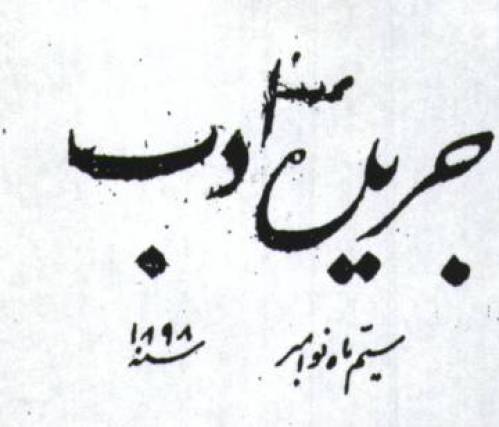 جریده ادب
ماه نوامبر سنه ۱۸۹۸